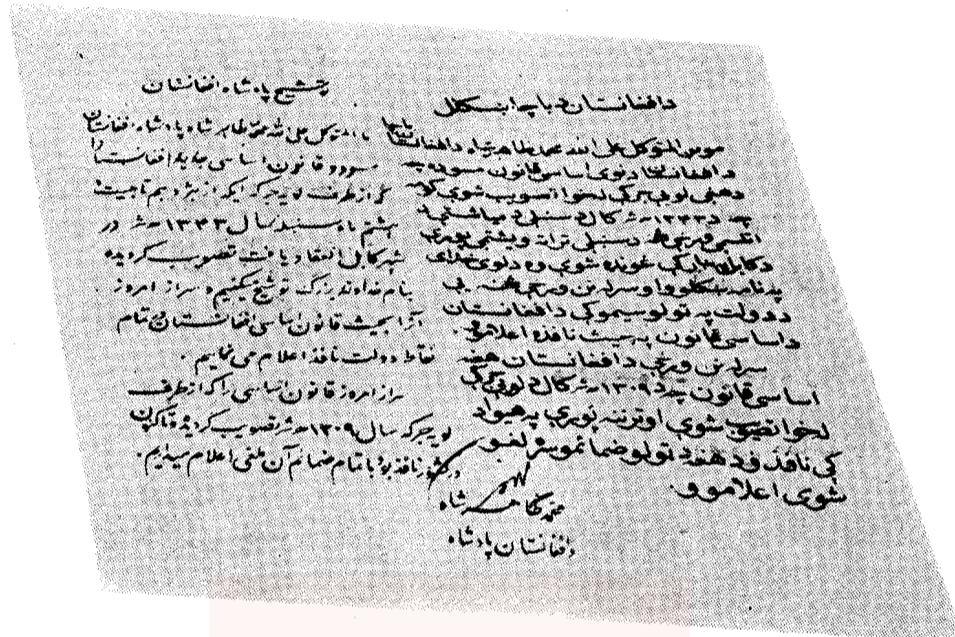 د افغانستان د پاچا ښکل
موږ المتوکل علی الله محمد ظاهر شاه د افغانستان پاچا
د افغانستان د نوی اساسی قانون مسوده چه
دهغی لویی جرگی لخوا تصویب شوی کومه
چه د ۱۳۴۳ ه ش کال د سنبلی د میاشتی د
ورځی د سنبلی تر اتو یشتمی پوری
د کابل په ښارکی غونډه شوی وه د لوی خدای
په نامه ښکلوو او سر له نن ورځی یی
د دولت په ټولو سیموکی د افغانستان
د اساسی قانون په حیث نافذه اعلاموو.
سر له نن ورځی د افغانستان هغه
اساسی قانون چه د ۱۳۰۹ ه ش کال د لویی جرگی
لخوا تصویب شوی او تر ننه پوری په هیواد
کی نافذ ؤ د هغه د ټولو ضمائمو سره لغو
شوی اعلاموو.
توشیح پادشاه افغانستان
ما المتوکل علی الله محمد ظاهر شاه پادشاه افغانستان
مسوده قانون اساسی جدید افغانستان را
که از طرف لویه جرگه ایکه از هژدهم تا بیست
هشتم ماه سنبله سال ۱۳۴۳ ه ش در
شهر کابل انعقاد یافت تصویب گردیده
بنام خداوند بزرگ توشیح میکنیم و سر از امروز
آنرا بحیث قانون اساسی افغانستان در تمام
نقاط دولت نافذ اعلام می نماییم.
سر از امروز قانون اساسی را که از طرف
لویه جرگه سال ۱۳۰۹ ه ش تصویب گردیده تاکنون
در کشور نافذ بود با تمام ضمائم آن ملغی اعلام میداریم.
محمد ظاهر شاه
د افغانستان پادشاه